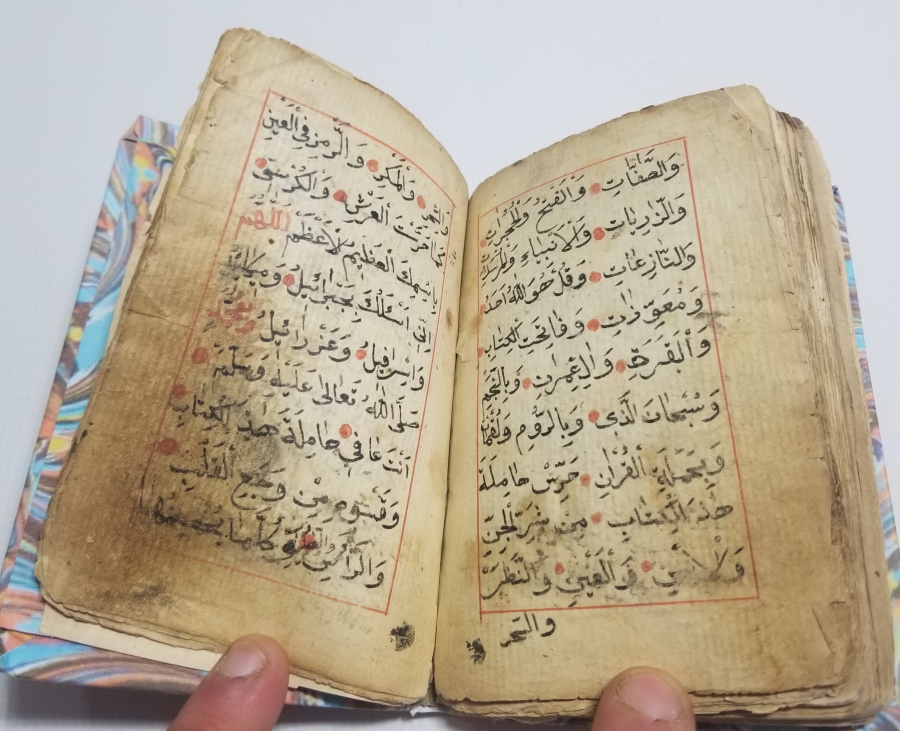 وَالصَّفَّاتِ وَالْفَتْحِ وَالْحُجُرَاتِ
وَالذَّارِيَاتِ وَالْاَنْبِيَاءِ وَالْمُرْسَلَاتِ
وَالنَّازِعَاتِ وَقُلْ هُوَ اللّٰهُ اَحَدٌ
وَمُعَوِّذَاتِ وَفَاتِحَتِ الْكِتَابِ
وَالْبَقَرَةِ وَالِ عِمْرٰنَ وَبِالنَّجْمِ
وَسُبْحَانَ الَّذِى وَبِالرُّومِ وَلُقْمَانَ
وَبِجُمْلَةِ الْقُرْاٰنِ حَرِّسْ حَامِلَهُ
هٰذَا الْكِتَابِ مِنْ شَرِّ الْجِنِّ
وَلْاِنْسِ فِى الْعَيْنِ وَالنَّظَرِ
وَالسِّحْرِ
وَالسِّحْرِ وَالْمَكْرِ وَالرَّمْزِ فِى الْعَيْنِ
كَمَا حَرَسْتَ الْعَرْشِ وَالْكُرْسِىِّ
بِاسْمِكَ الْعَظِيْمِ الْاَعْظَمِ اَللّٰهُمَّ
اِنِّى اَسْئَلُكَ بِجَبْرَائِيْلُ وَمِيكَائِلُ
وَاِسْرَافِيلُ وَعَزْرَائِيلُ
صَلَّى اللّٰهُ تَعَالٰى عَلَيْهِ وَسَلَّمَ
اَنْتَ عَافِى حَامِلَهُ هٰذَا الْكِتَابِ
مِنْ وَجَعِ الْقَلْبِ
وَالرَّاْسِ كُلِّهَا